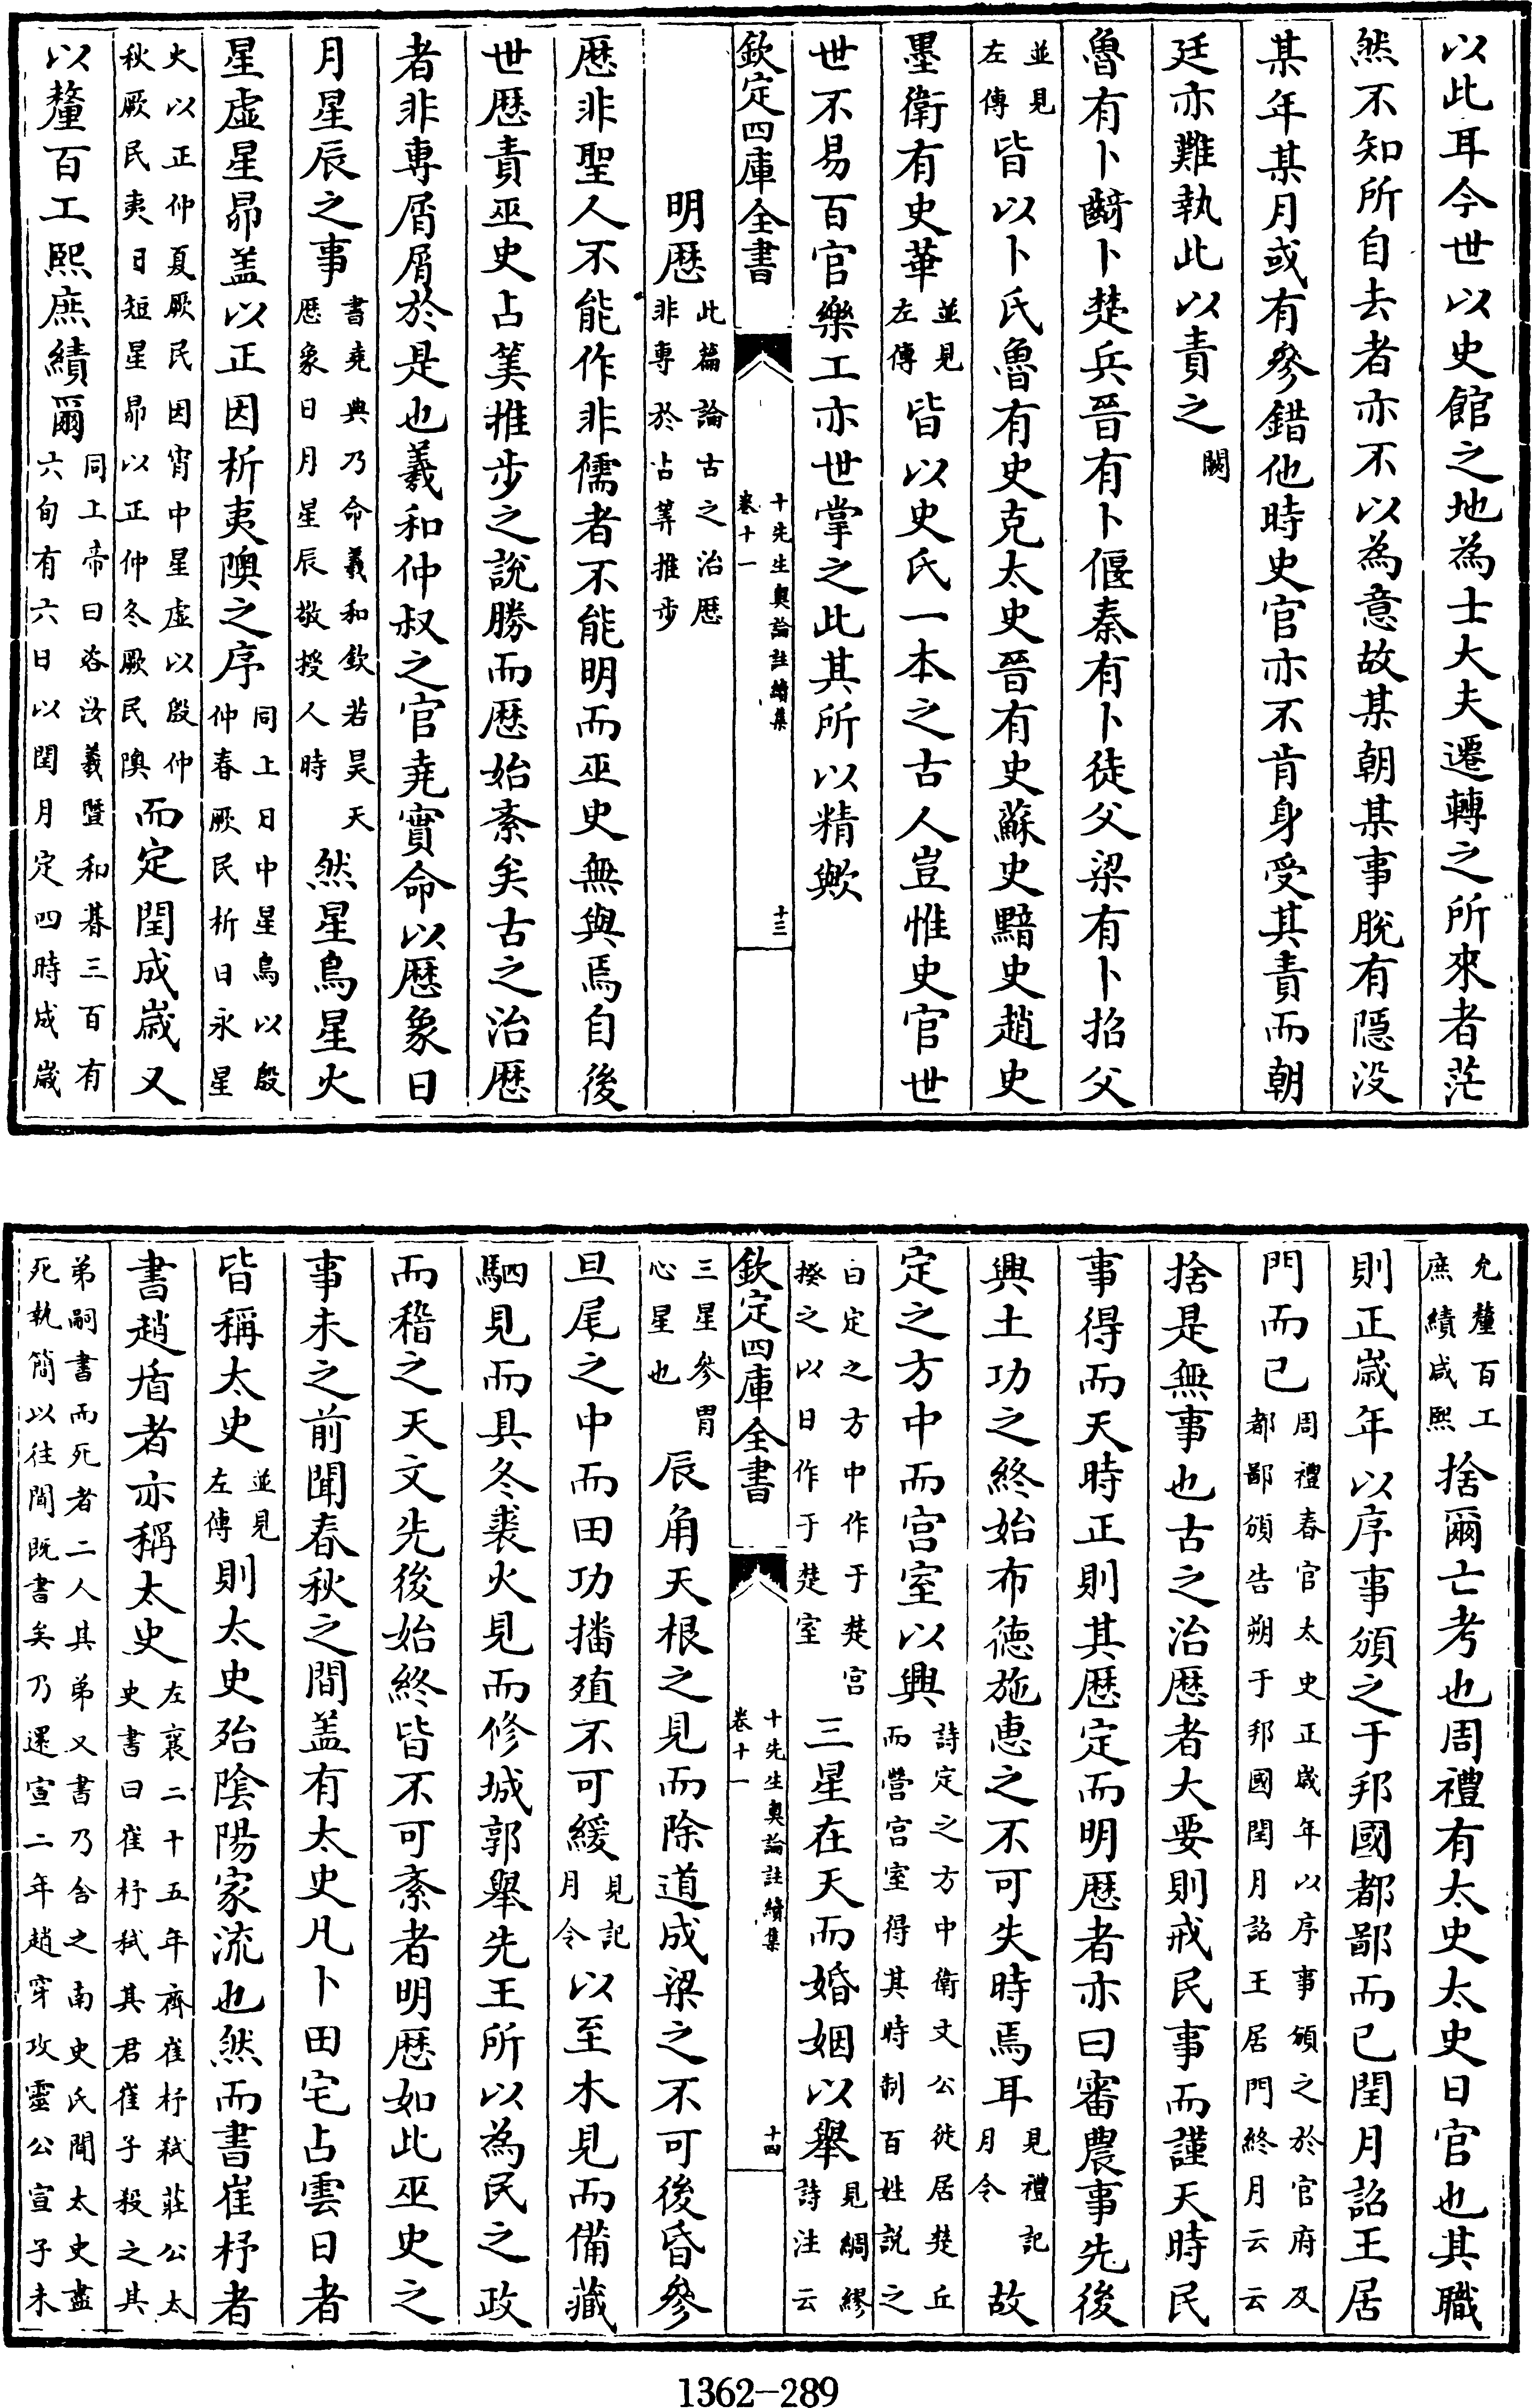 以此耳今世以史館之地為士大夫遷轉之所來者茫
然不知所自去者亦不以為意故某朝某事脱有隠没
某年某月或有參錯他時史官亦不肯身受其責而朝
廷亦難執此以責之闕
魯有卜齮卜楚兵晉有卜偃秦有卜徒父梁有卜招父
並見左傳皆以卜氏魯有史克太史晉有史蘇史黯史趙史
墨衛有史華並見左傳皆以史氏一本之古人豈惟史官世
世不易百官樂工亦世掌之此其所以精歟
欽定四庫全書
十先生奧論註續集
卷十一
十三
明厯此篇論古之治厯非專於占筭推步
厯非聖人不能作非儒者不能明而巫史無與焉自後
世厯責巫史占筭推步之說勝而厯始紊矣古之治厯
者非専屑屑於是也羲和仲叔之官堯實命以厯象日
月星辰之事書堯典乃命羲和欽若昊天厯象日月星辰敬授人時然星鳥星火
星虛星昴盖以正因析夷隩之序同上日中星鳥以殷仲春厥民析日永星
火以正仲夏厥民因宵中星虛以殷仲秋厥民夷日短星昴以正仲冬厥民隩而定閏成嵗又
以釐百工熙庶績爾同上帝曰咨汝羲暨和朞三百有六旬有六日以閏月定四時成嵗
允釐百工庶績咸熙捨爾亡考也周禮有太史太史日官也其職
則正嵗年以序事頒之于邦國都鄙而已閏月詔王居
門而已周禮春官太史正歲年以序事頒之於官府及都鄙頒告朔于邦國閏月詔王居門終月云云
捨是無事也古之治厯者大要則戒民事而謹天時民
事得而天時正則其厯定而明厯者亦曰審農事先後
興土功之終始布德施惠之不可失時焉耳見禮記月令故
定之方中而宫室以興詩定之方中衛文公徙居楚丘而營宫室得其時制百姓説之
白定之方中作于楚宫揆之以日作于楚室三星在天而婚姻以舉見綢繆詩注云
欽定四庫全書
十先生奧論註續集
卷十一
十四
三星參胃心星也辰角天根之見而除道成梁之不可後昏參
旦尾之中而田功播殖不可緩見記月令以至木見而備藏
駟見而具冬裘火見而修城郭舉先王所以為民之政
而稽之天文先後始終皆不可紊者明厯如此巫史之
事未之前聞春秋之間盖有太史凡卜田宅占雲日者
皆稱太史並見左傳則太史殆隂陽家流也然而書崔杼者
書趙盾者亦稱太史左襄二十五年齊崔杼弑莊公太史書曰崔杼弑其君崔子殺之其
弟嗣書而死者二人其弟又書乃舍之南史氏聞太史盡死執簡以往聞既書矣乃還宣二年趙穿攻靈公宣子未
1362-289